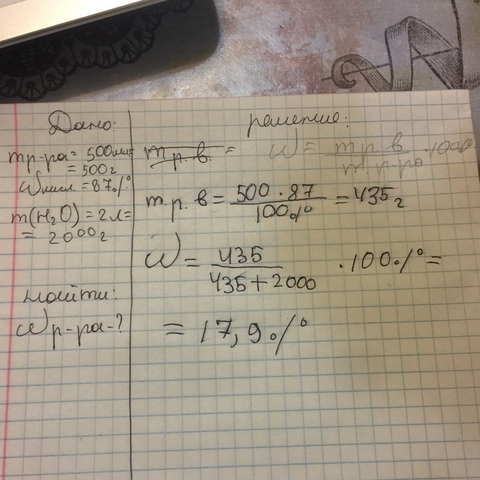 Дано:
mр-ра = 500мл
= 500г
ωкисл = 87%
m(H₂O) = 2л =
= 2000г
Найти:
ωр-ра - ?
решение:
m р. в. = ω = m р. в / m р-ра · 100%
m р. в = 500 · 87 / 100% = 435г
ω = 435 / 435 + 2000 · 100% =
= 17,9%